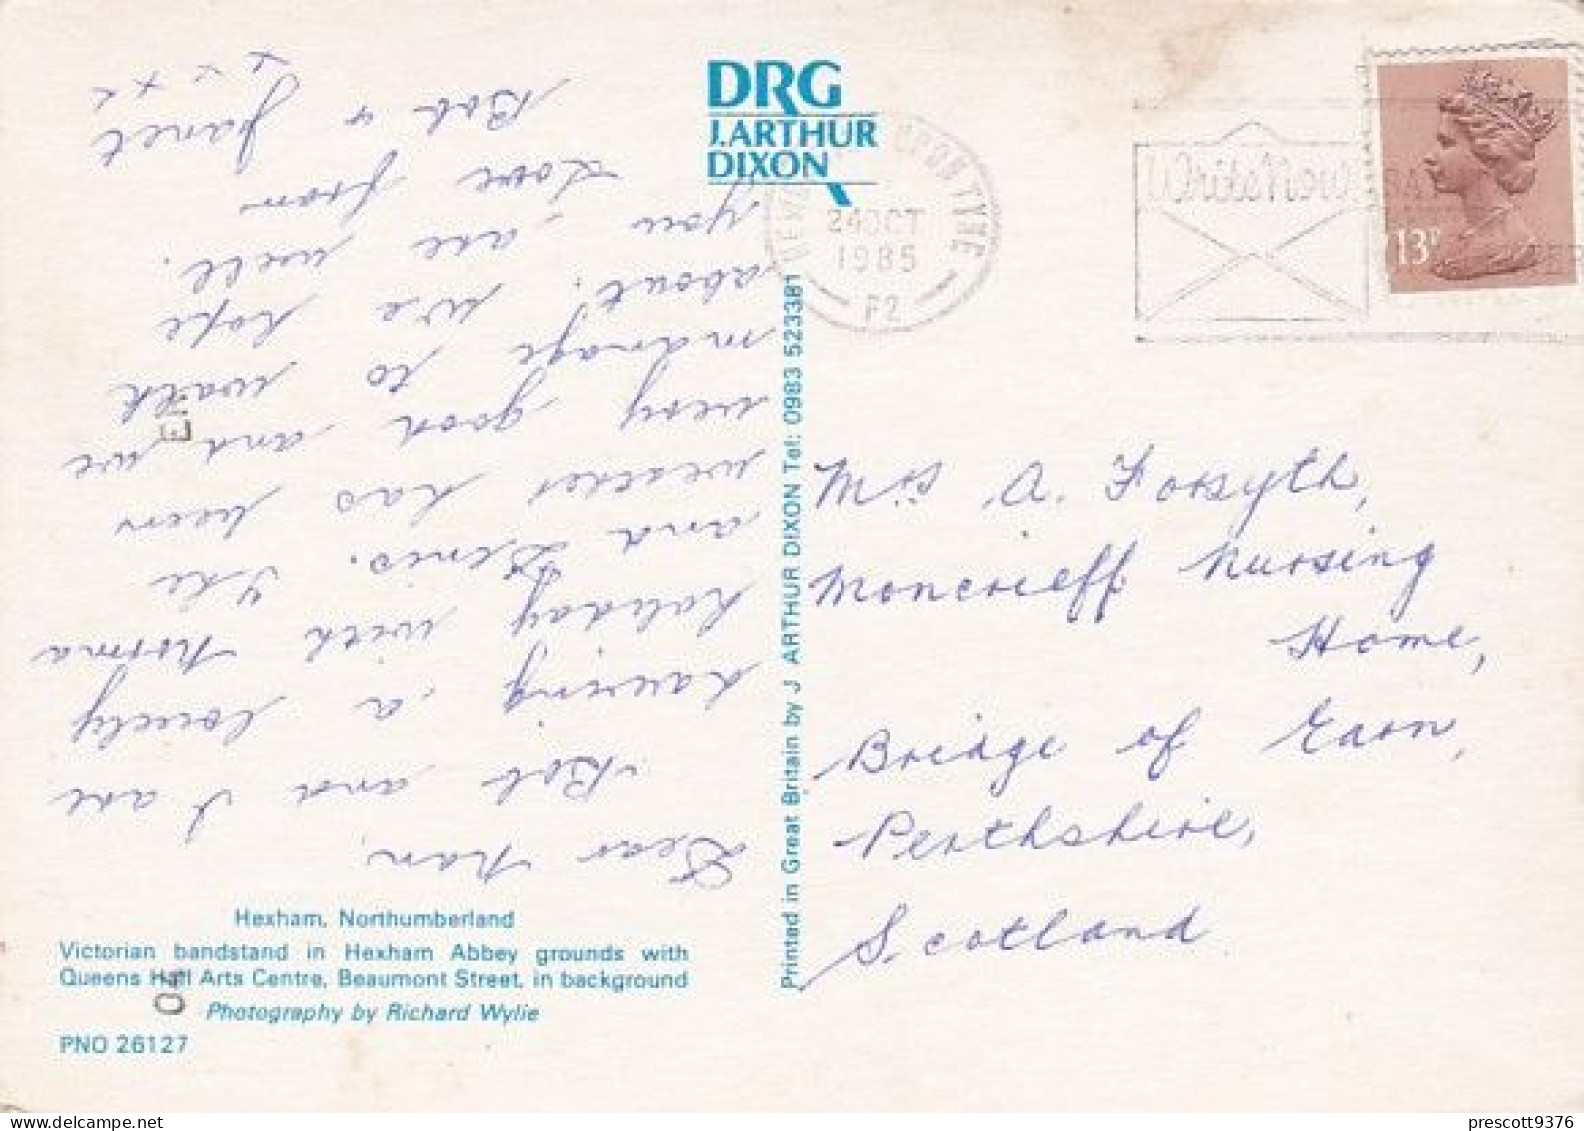 Dear Nan,
Bob and I are
having a lovely
holiday with Norma
and Denis. The
weather has been
very good and we
manage to walk
about. We hope
you are well.
Love from
Bob & Janet
x x x x
DRG
J.ARTHUR
DIXON
UPON TYNE
24 OCT
1985
F2
Write Now
13P
Mrs A. Forsyth,
Moncrieff Nursing
Home,
Bridge of Earn,
Perthshire,
Scotland
Printed in Great Britain by J ARTHUR DIXON Tel: 0983 523381
Hexham, Northumberland
Victorian bandstand in Hexham Abbey grounds with
Queens Hall Arts Centre, Beaumont Street, in background
Photography by Richard Wylie
PNO 26127
prescott9376